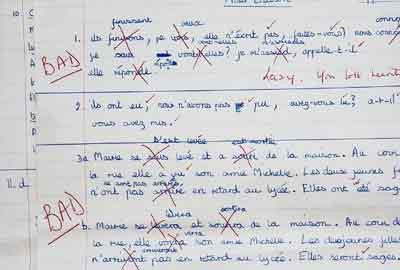 finissent veux conno
1. ils finirons, je vois, elle n'écrit pas, faites-vous) nous conno
sont-elles m'assieds
je suis vont-elles? je m'assied, appelle-t-il
répon
elle réponde Lazy. You both learnt
BAD
2. ils ont eu, nous n'avons pas pu, avez-vous lu?, a-t-il
vous avez mis.
s'est levée est sortie
3a Marie se suis levé et a sorti de la maison. Au cour
la rue elle a vu son amie Michelle. Les deux jeunes f
ne sont pas arrivées
n'ont pas arrivé en retard au lycée. Elles ont été sag
11. d.
BAD
lèvera sortira
b. Marie se levera et sortira de la maison. Au cour d
verra
la rue, elle voyra son amie Michelle. Les deux jeunes filles
arriveront
n'arriveront pas en retard au lycée. Elles seront sages.